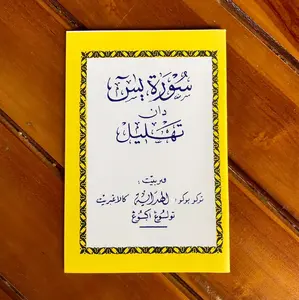 سورة يس
دان
تهليل
ڤنربيت :
توكو بوكو : الهداية كالاڠبريت
تولوڠ اݢوڠ